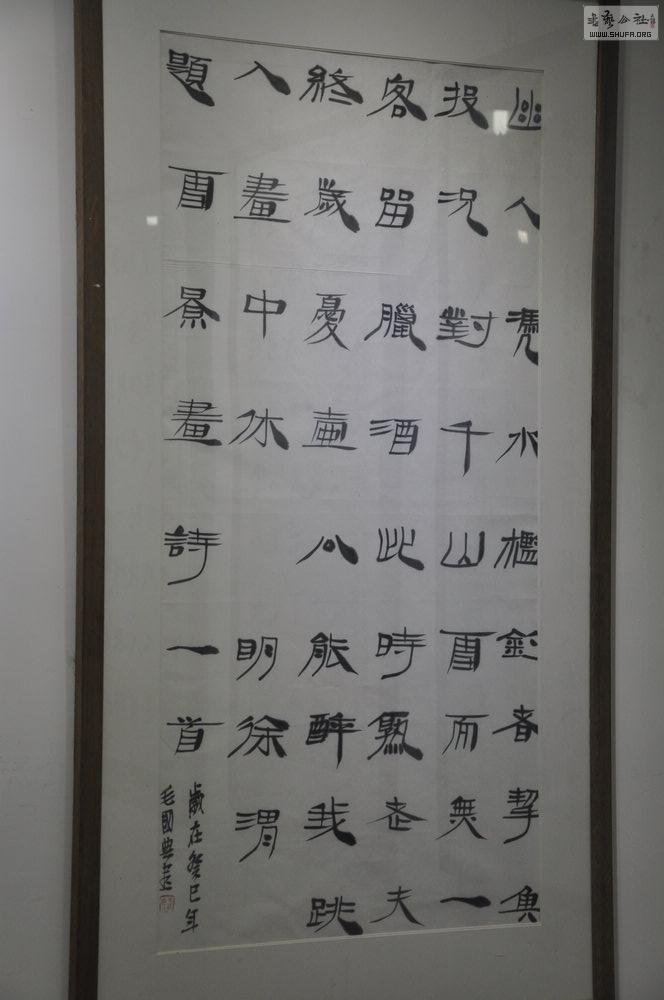 幽人凭水檻釣者挈魚
投況對千山雪而無一
客留臘酒此時熟老夫
終歲憂壺公能醉我跳
入畫中休 明徐渭
題雪景畫詩一首
歲在癸巳年
毛國典書
书法公社
WWW.SHUFA.ORG